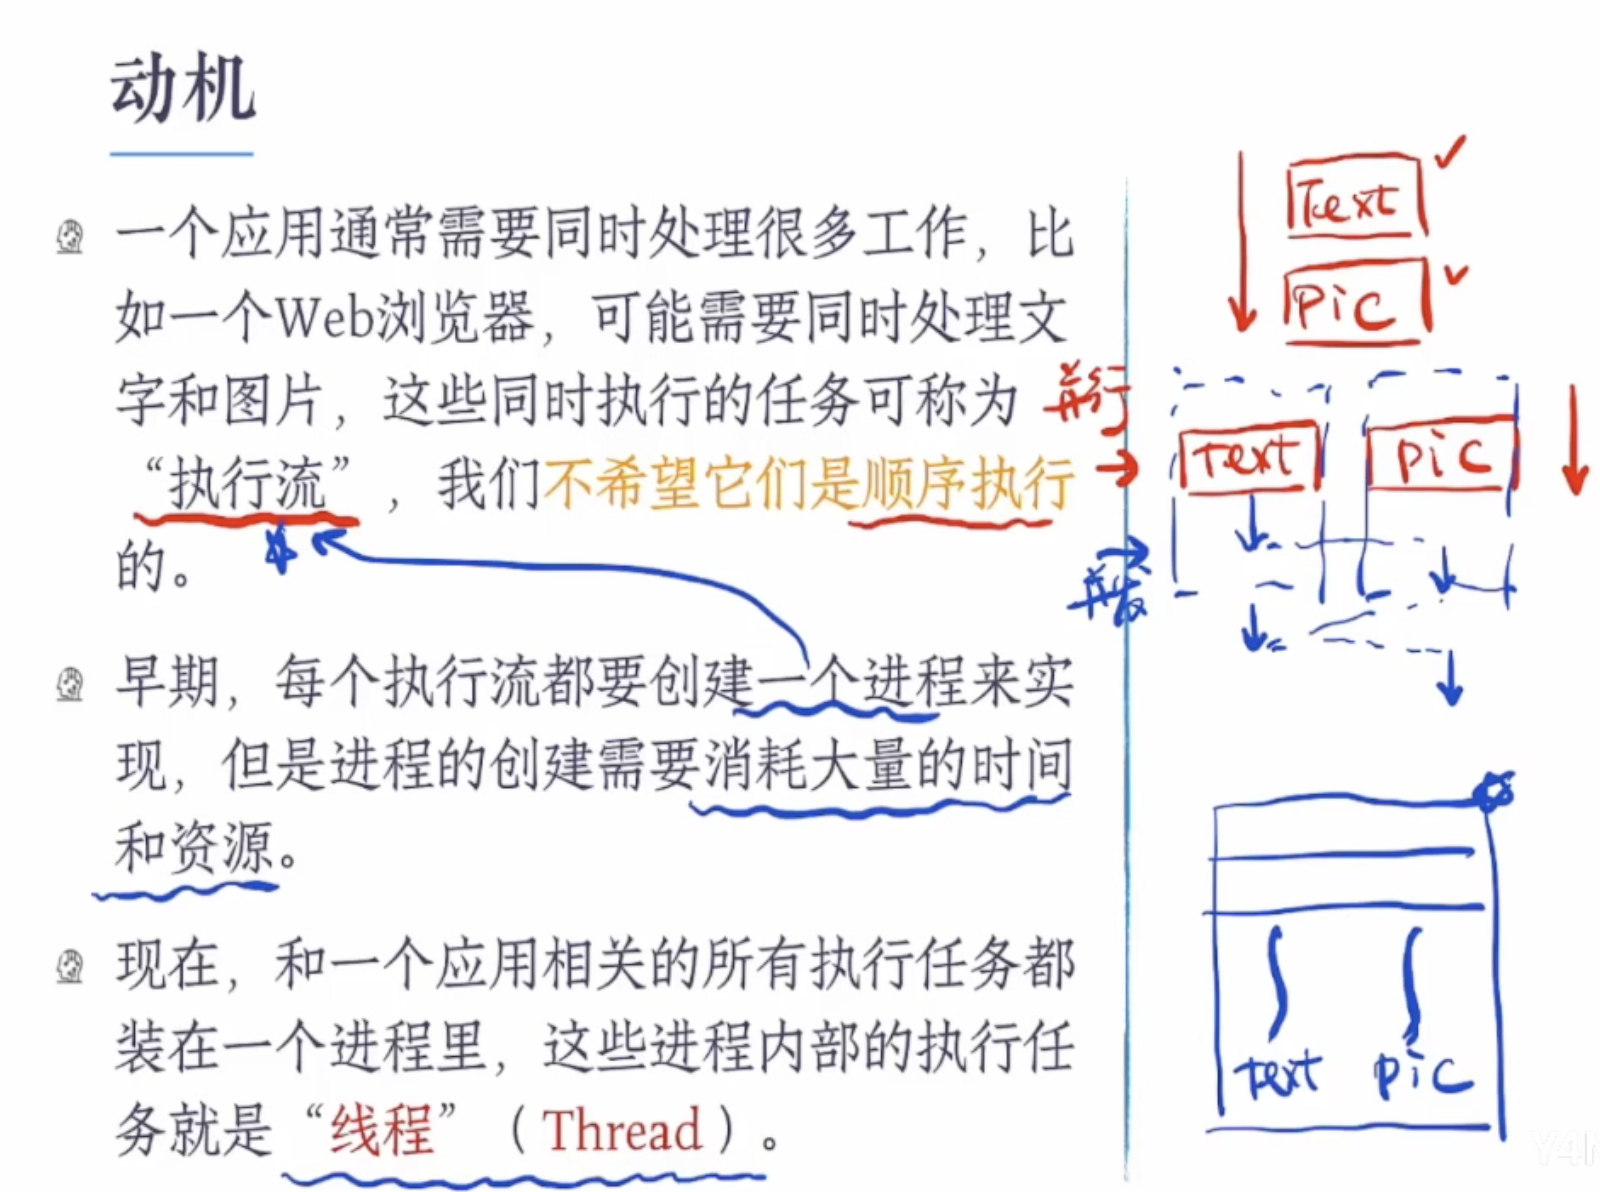 动机
一个应用通常需要同时处理很多工作，比
如一个Web浏览器，可能需要同时处理文
字和图片，这些同时执行的任务可称为
“执行流”，我们不希望它们是顺序执行
的。
早期，每个执行流都要创建一个进程来实
现，但是进程的创建需要消耗大量的时间
和资源。
现在，和一个应用相关的所有执行任务都
装在一个进程里，这些进程内部的执行任
务就是“线程”（Thread）。
Text
Pic
并行
Text
Pic
并发
Text
Pic